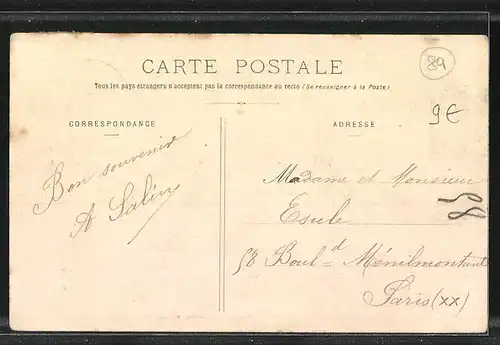 CARTE POSTALE
Tous les pays étrangers n'acceptent pas la correspondance au recto (Se renseigner à la Poste)
89
9€
CORRESPONDANCE
ADRESSE
Bon souvenir
A Salin
Madame et Monsieur
Esule
58
58 Boul=d Ménilmontant
Paris (XX)